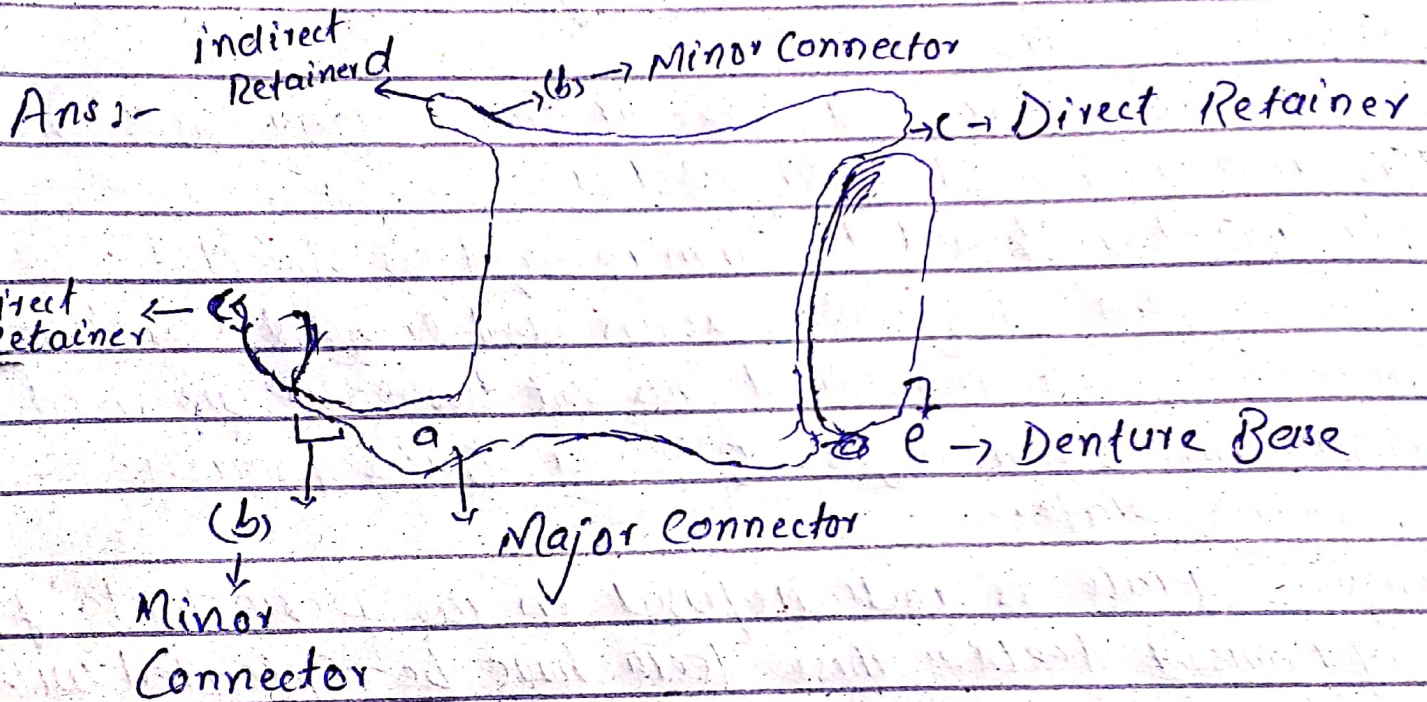 indirect
Retainer d
(b) → Minor Connector
Ans :-
→ c → Direct Retainer
irect
etainer ← c
a
e → Denture Base
(b)
Major Connector
Minor
Connector